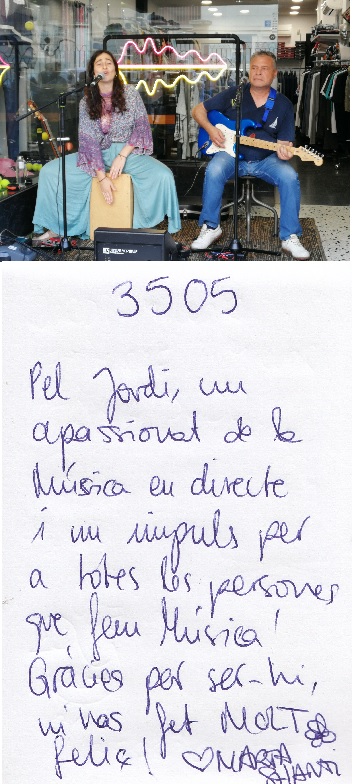 3505
Pel Jordi, un
apassionat de la
Música en directe
i un impuls per
a totes les persones
que fem Música!
Gràcies per ser-hi,
m'has fet MOLT
feliç! ♡ MARTA